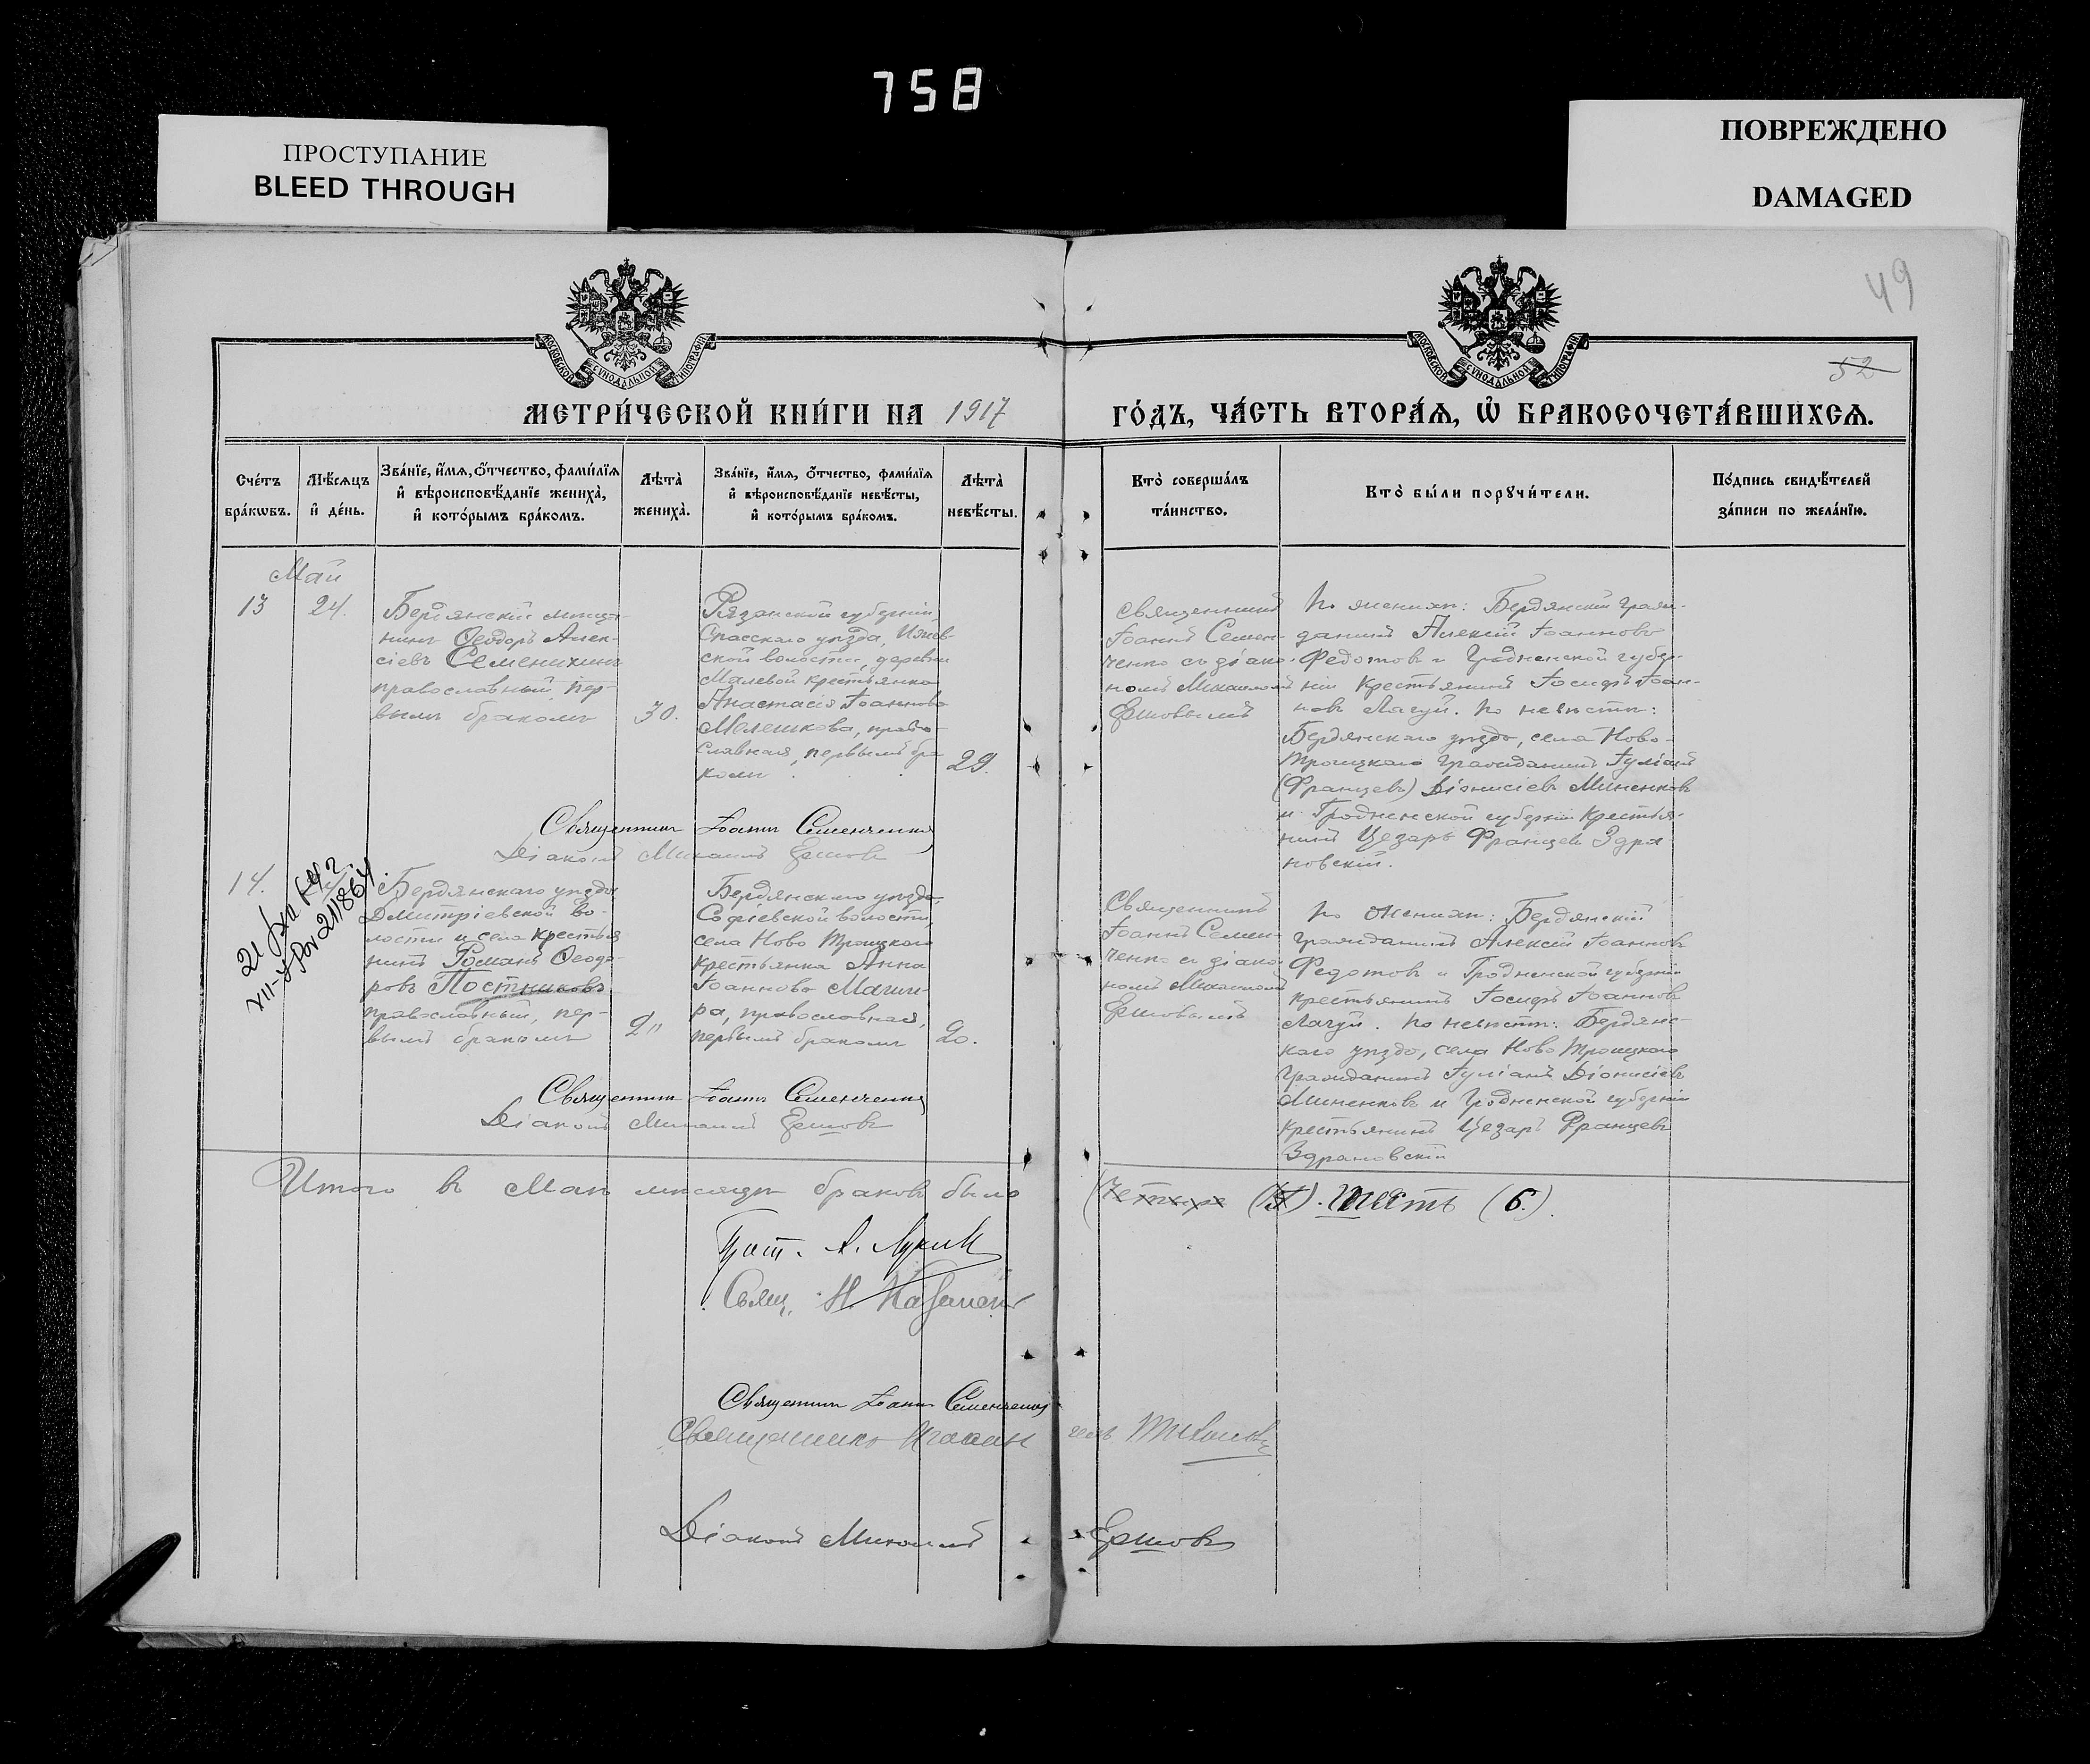 758
ПРОСТУПАНИЕ
BLEED THROUGH
ПОВРЕЖДЕНО
DAMAGED
49
52
МОСКОВСКОЙ СѴНОДАЛЬНОЙ ТИПОГРАФІИ
МОСКОВСКОЙ СѴНОДАЛЬНОЙ ТИПОГРАФІИ
МЕТРИ́ЧЕСКОЙ КНИ́ГИ НА 1917
ГО́ДЪ, ЧА́СТЬ ВТОРА́Ѧ, Ѡ҆ БРАКОСОЧЕТА́ВШИХСѦ.
Сче́тъ
бра́кѡвъ.
Мѣ́сѧцъ
и҆ де́нь.
Зва́нїе, и҆́мѧ, ѻ҆́тчество, фами́лїѧ
и҆ вѣроисповѣ́данїе жениха̀,
и҆ кото́рымъ бра́комъ.
Лѣта̀
жениха̀.
Зва́нїе, и҆́мѧ, ѻ҆́тчество, фами́лїѧ
и҆ вѣроисповѣ́данїе невѣ́сты,
и҆ кото́рымъ бра́комъ.
Лѣта̀
невѣ́сты.
Кто̀ соверша́лъ
та́инство.
Кто̀ бы́ли порꙋчи́тели.
По́дпись свидѣ́телей
за́писи по жела́нїю.
Май
13
24.
Бердянскій мѣща-
нинъ Ѳеодоръ Алек-
сіевъ Семенихинъ
православный, пер-
вымъ бракомъ
30.
Рязанской губерніи,
Спасскаго уѣзда, Ижев-
ской волости, деревни
Малевой крестьянка
Анастасія Іоаннова
Мелешкова, право-
славная, первымъ бра-
комъ
29.
Священникъ
Іоаннъ Семен-
ченко съ діако-
номъ Михаиломъ
Ершовымъ
По женихѣ: Бердянскій граж-
данинъ Алексій Іоанновъ
Федотовъ и Гродненской губер-
ніи крестьянинъ Іосифъ Іоан-
новъ Лагуй. По невѣстѣ:
Бердянскаго уѣзда, села Ново-
Троицкаго гражданинъ Іуліанъ
(Францевъ) Діонисіевъ Миненковъ
и Гродненской губерніи крестья-
нинъ Цезарь Францевъ Здра-
новскій.
Священникъ Іоаннъ Семенченко
Діаконъ Михаилъ Ершовъ
14.
VII-
211864
Бердянскаго уѣзда
Дмитріевской во-
лости и села крестья
нинъ Романъ Ѳеодо-
ровъ Постниковъ
православный, пер-
вымъ бракомъ
Бердянскаго уѣзда
Софіевской волости,
села Ново Троицкаго
крестьянка Анна
Іоаннова Мачи-
ра, православная,
первымъ бракомъ
20.
Священникъ
Іоаннъ Семен-
ченко съ діако-
номъ Михаиломъ
Ершовымъ
По женихѣ: Бердянскій
гражданинъ Алексій Іоанновъ
Федотовъ и Гродненской губерніи
крестьянинъ Іосифъ Іоанновъ
Лагуй. По невѣстѣ: Бердянс-
каго уѣзда, села Ново Троицкаго
гражданинъ Іуліанъ Діонисіевъ
Миненковъ и Гродненской губерніи
крестьянинъ Цезарь Францевъ
Здрановскій
Священникъ Іоаннъ Семенченко
Діаконъ Михаилъ Ершовъ
Итого въ Маѣ мѣсяцѣ браковъ было (Четыре (4). Шесть (6.).
Прот. А.
Свящ. Н.
Священникъ Іоаннъ Семенченко
Священникъ
Діаконъ Михаилъ Ершовъ